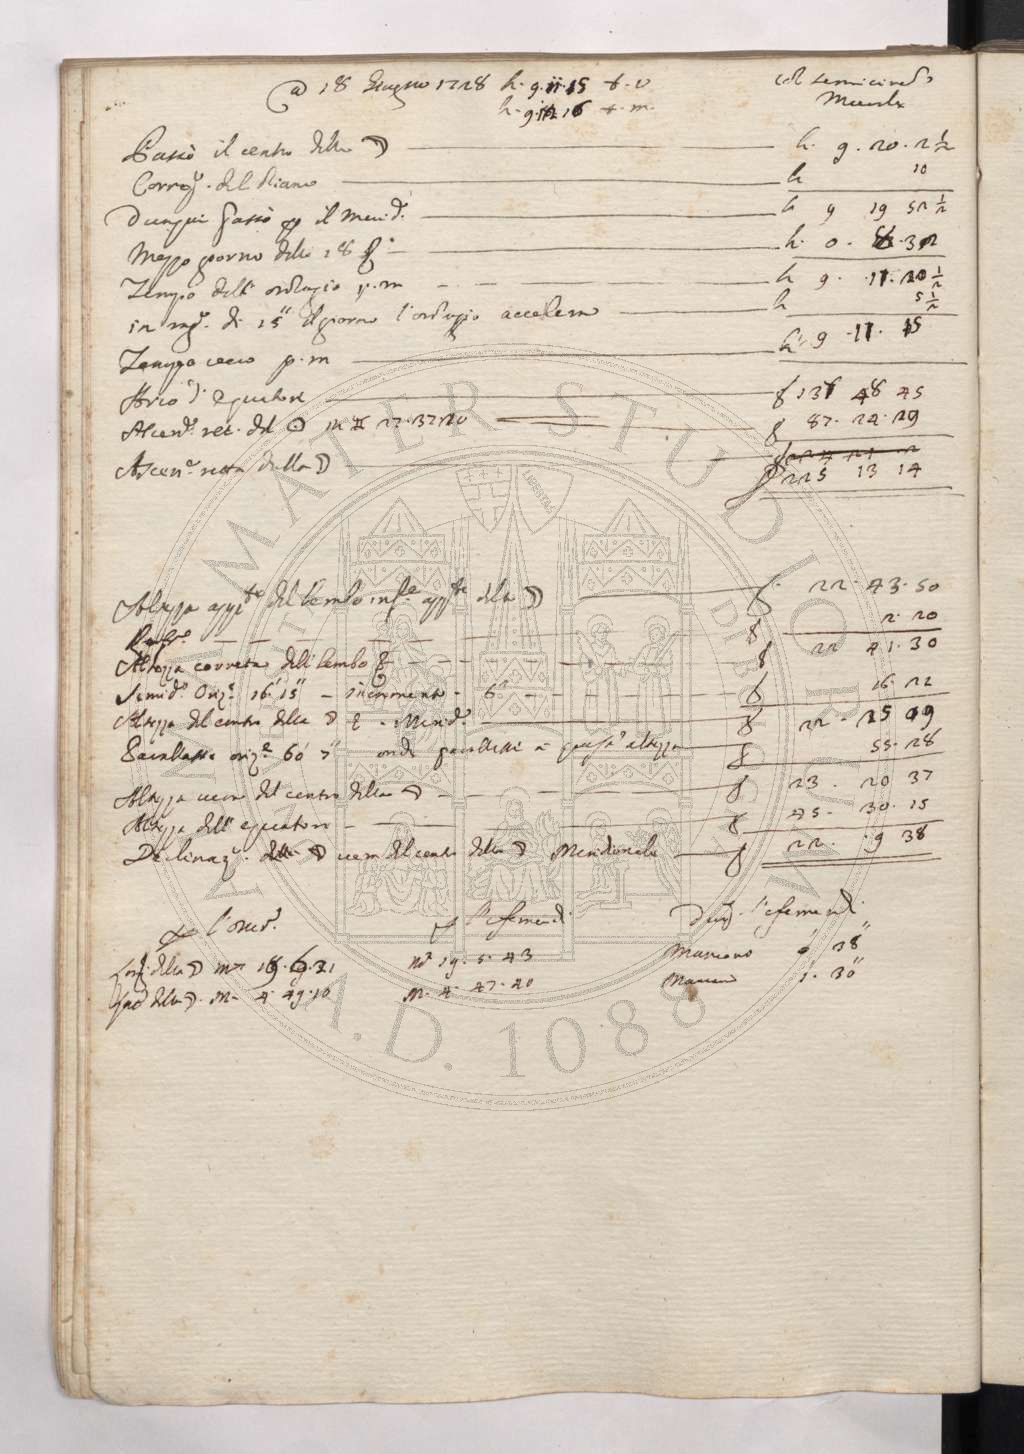 a 18 Giugno 1728 h. 9. 11. 15 t. v
h. 9. 12 16 t. m.
col semicircolo
Murale
Passò il centro della ☽ h. 9. 20. 2 1/2
Correz.e del Piano h 10
Dunque passò p il Merid.o h 9 19 52 1/2
Mezzo giorno delli 18 h. 0. 8. 32
Tempo dell' orologio p. m h 9. 11. 20 1/2
in rag.e di 15" il giorno l'orologio accelera h 5 1/2
Tempo vero p. m h 9. 11. 15
Arco d' Equatore 137 48 45
Ascen.e ret. del ☉ in ♊ 27. 37. 20 87. 24. 29
Ascen.e retta della ☽ 225 13 14
Altezza app.te del Lembo inf.e app.te della ☽ 22. 43. 50
Refr.e 2. 20
Altezza corretta del Lembo 22 41. 30
Semid.o Oriz.e 16' 15" – incremento – 6" 16. 22
Altezza del centro della ☽ Merid.e 22. 25 09
Parallasse oriz.e 60' 7" onde parallasse a quest' altezza 55. 28
Altezza vera del centro della ☽ 23. 20 37
Altezza dell' equatore 45. 30. 15
Declinaz.e vera del centro della ☽ Meridionale 22. 9 38
p l'oss.e
p l'efemeridi
Diff. l'efemeridi
Long. della ☽ 19. 6. 21 19. 5. 43 Mancano 0' 38"
Lat. della ☽. M. 4. 49. 10 M. 4. 47. 40 Mancano 1'. 30"
ALMA MATER STUDIORUM
A.D. 1088
LIBERTAS